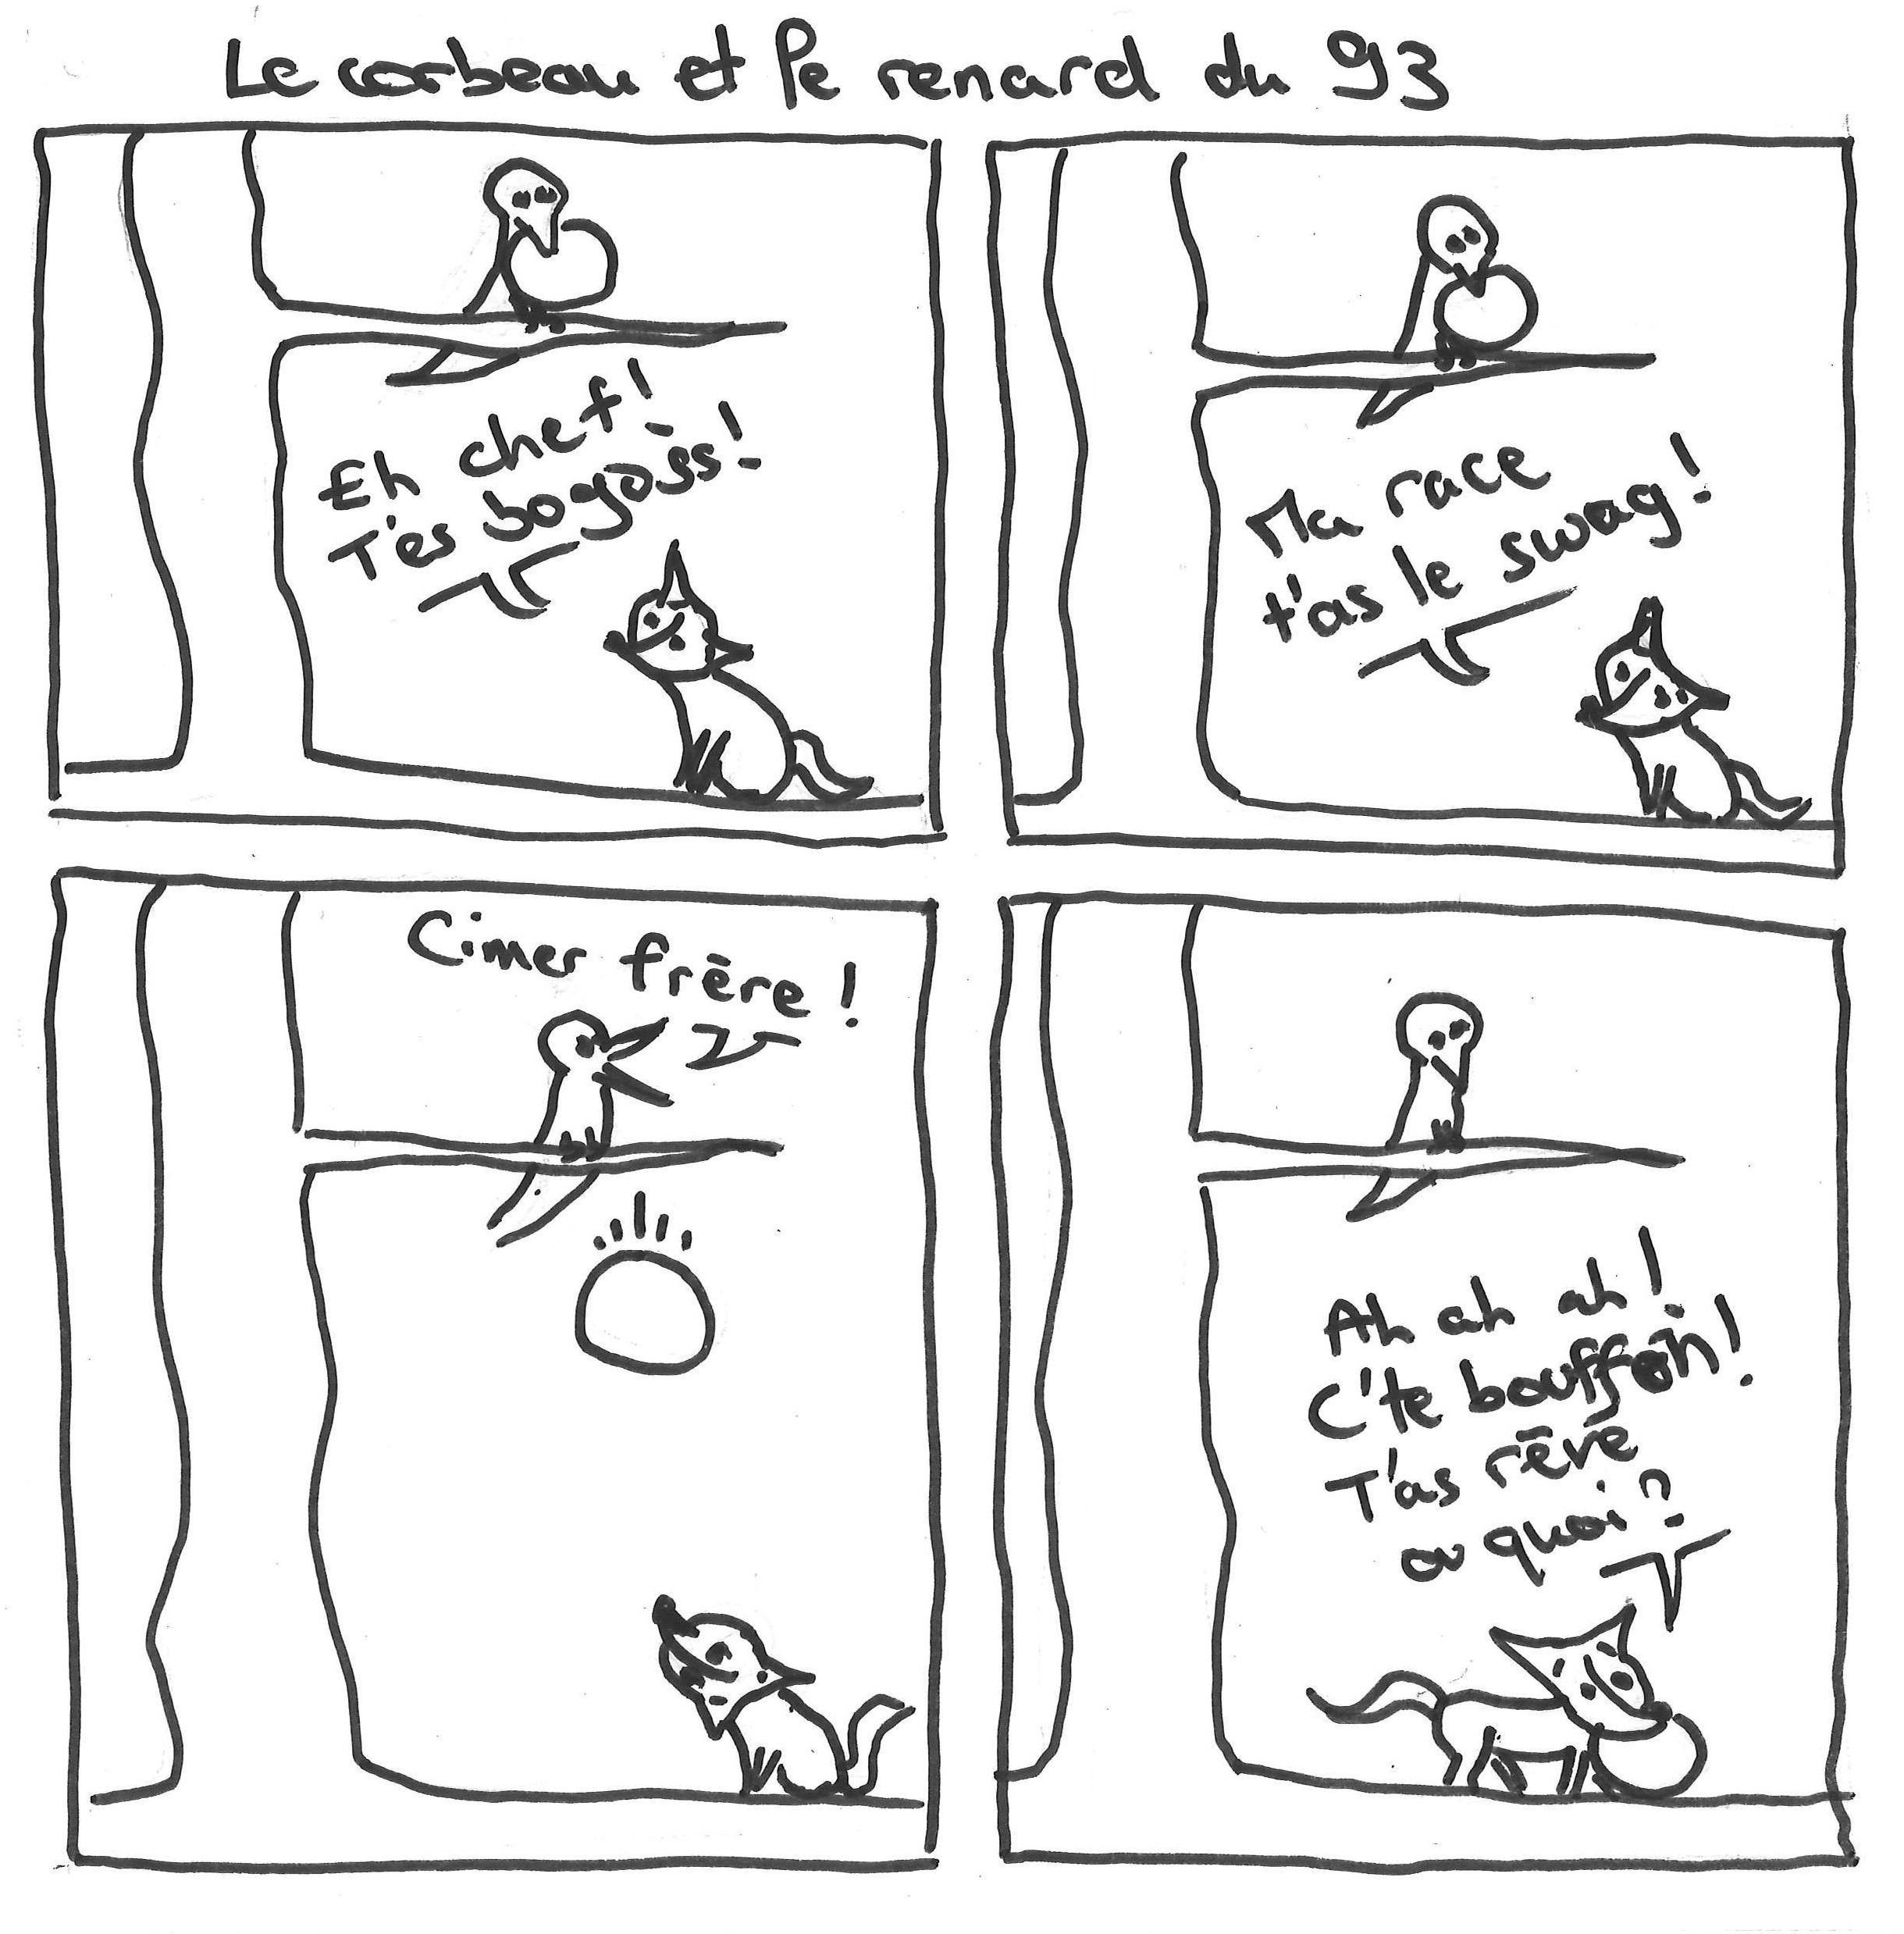 Le corbeau et le renard du 93
Eh chef!
T'es bogoss!
Ma race
t'as le swag!
Cimer frère!
Ah ah ah!
C'te bouffon!
T'as rêvé
ou quoi?